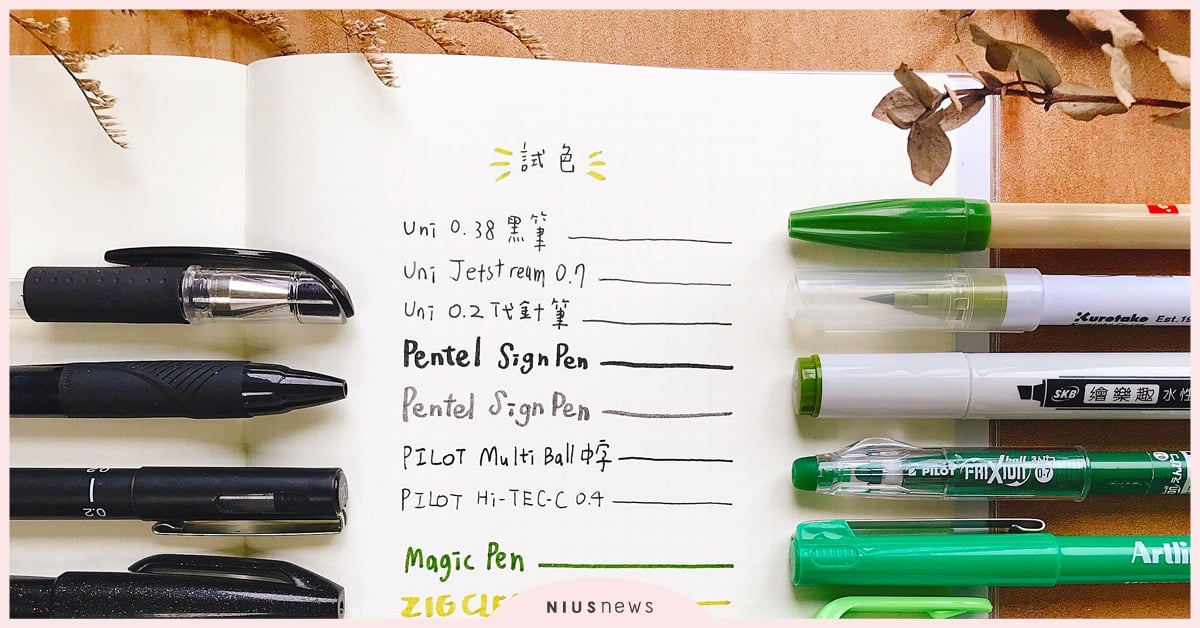 試色
Uni 0.38 黑筆
Uni Jetstream 0.7
Uni 0.2 代針筆
Pentel Sign Pen
Pentel Sign Pen
PILOT Multi Ball 中字
PILOT Hi-TEC-C 0.4
Magic Pen
ZIG CLE
0.2
Kuretake Est.19
SKB 繪樂趣 水性
PILOT FRIXION ball 0.7
Artli
NIUSnews